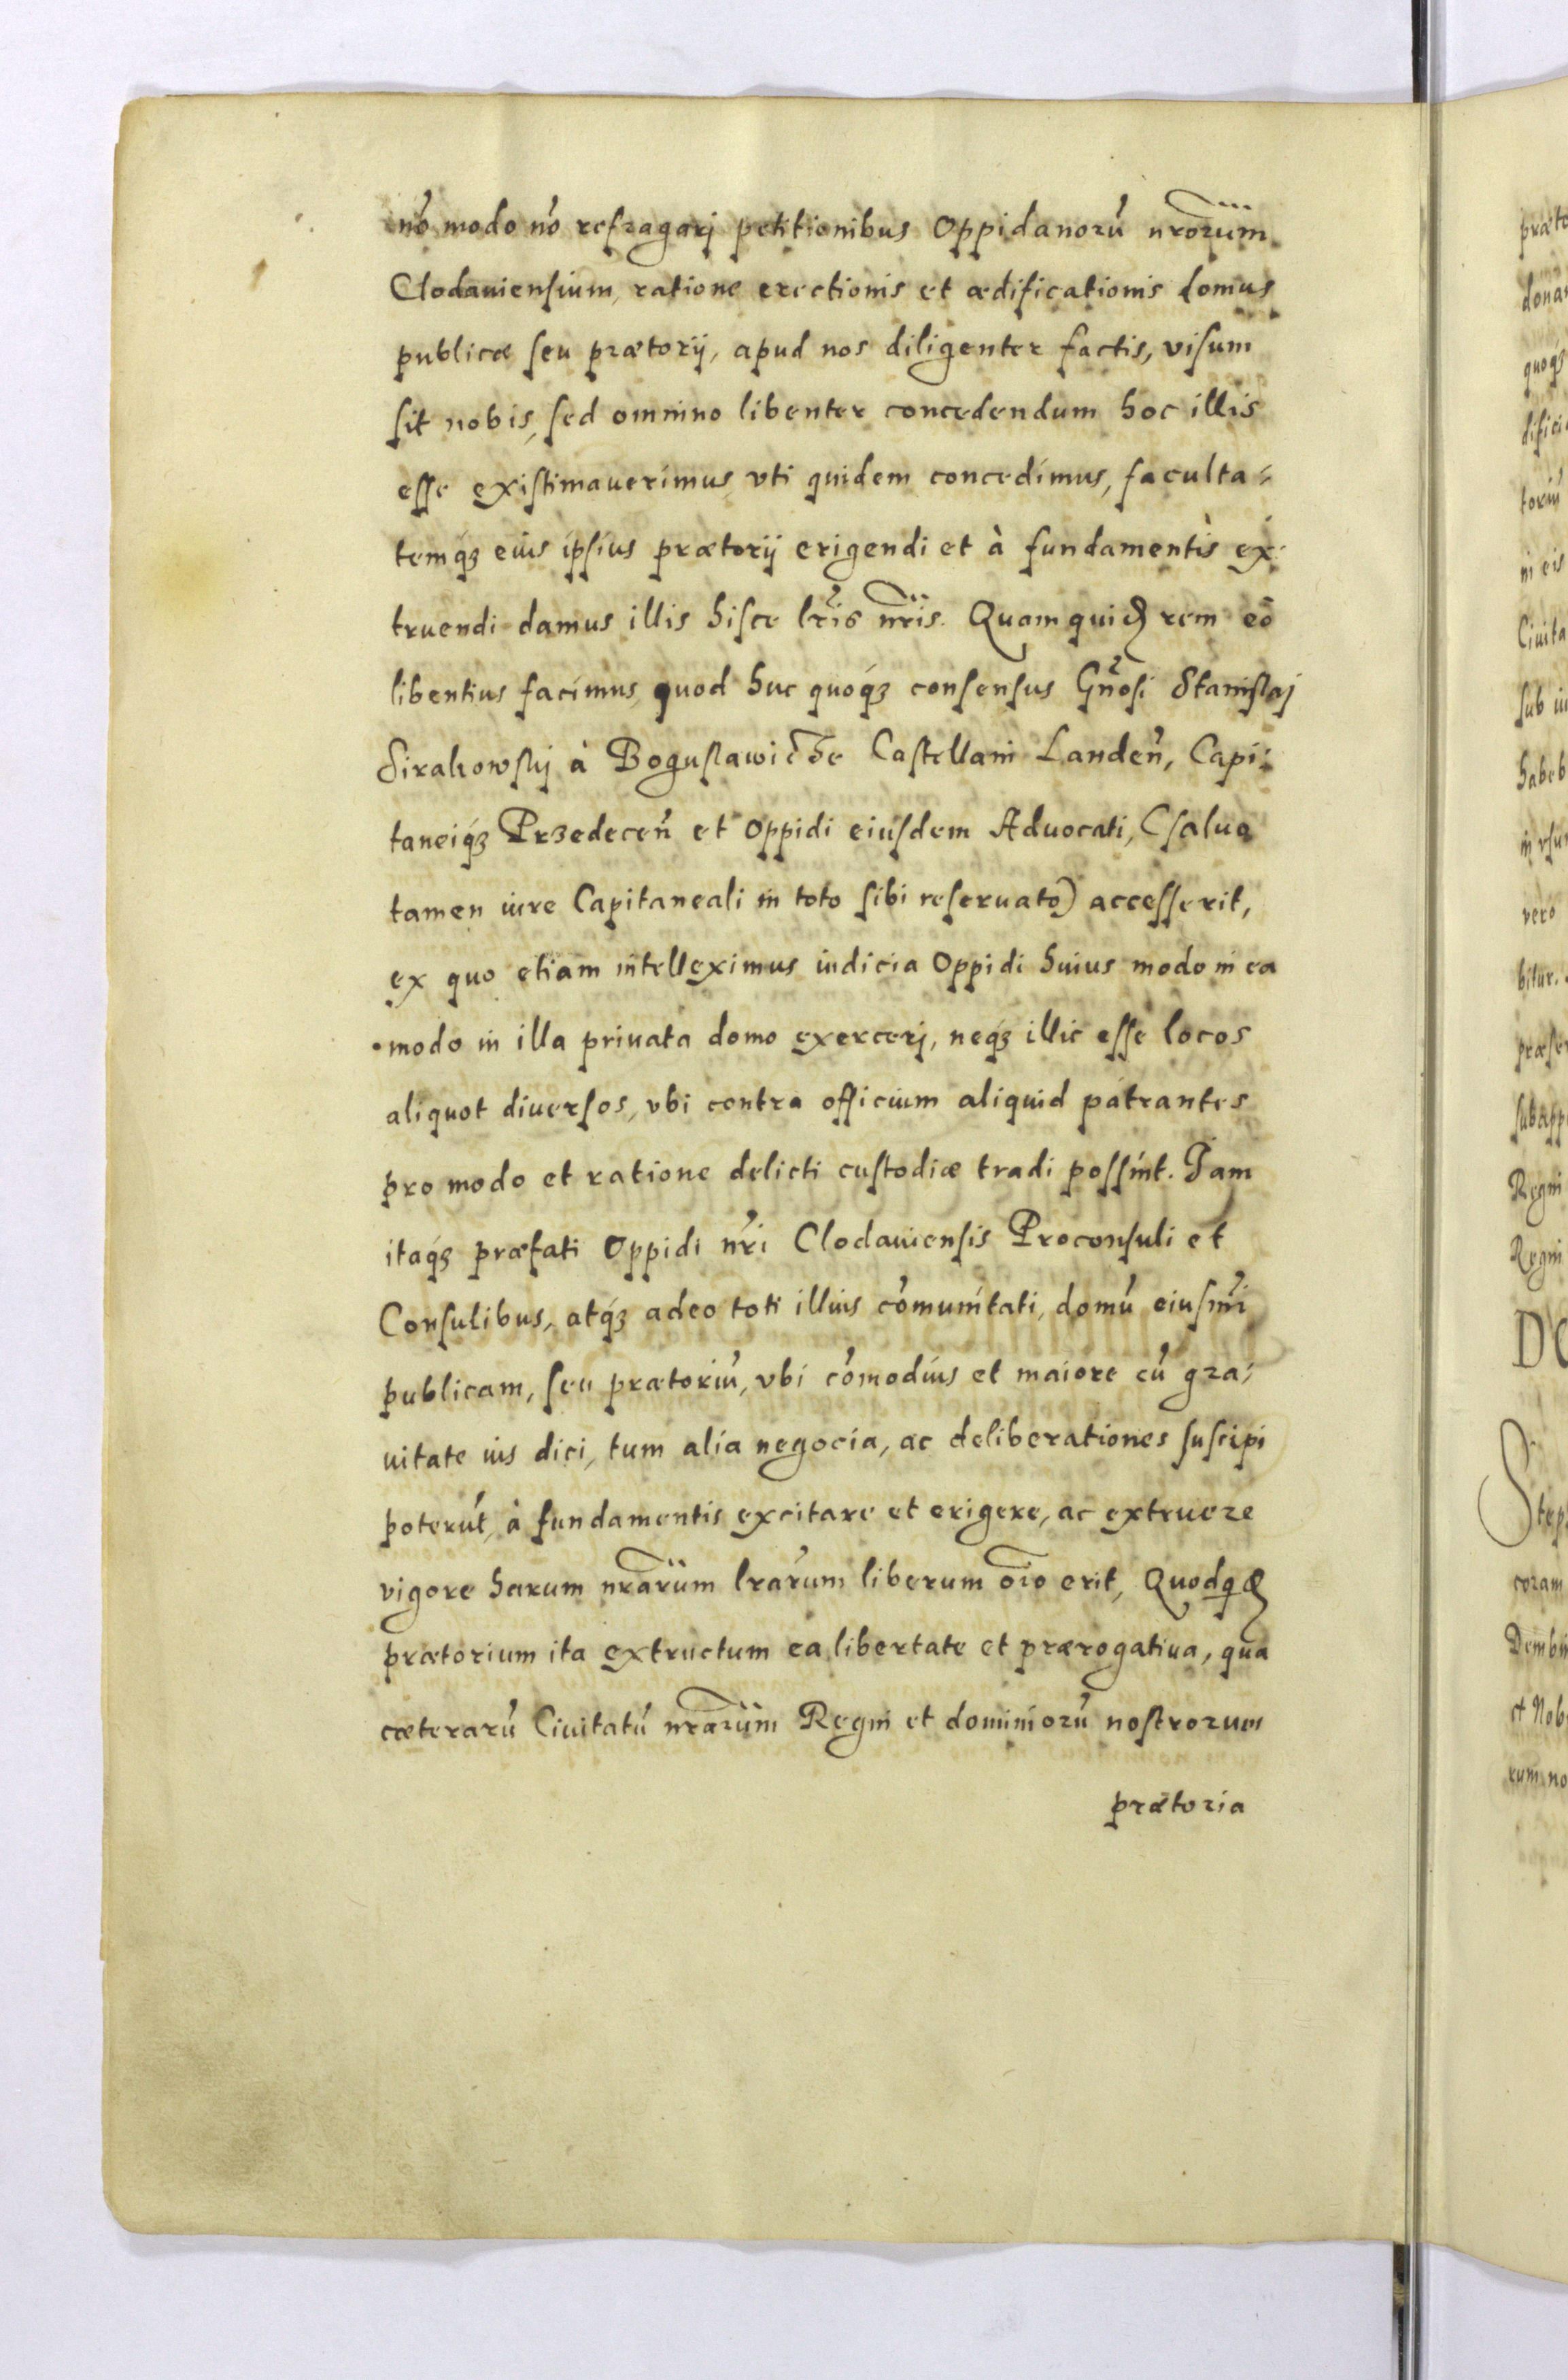 nõ modo nõ refragarj petitionibus Oppidanorũ nrõrum
Clodauiensium, ratione erectionis et ædificationis domus
publicæ seu prætorij, apud nos diligenter factis, visum
sit nobis, sed omnino libenter concedendum hoc illis
esse existimauerimus, vti quidem concedimus, faculta-
temq́ꝫ eius ipsius prætorij erigendi et à fundamentis ex-
truendi damus illis hisce lr̃is nr̃is. Quam quiđ rem eō
libentius facimus, quod huc quoq́ꝫ consensus Gñosi Stanislaj
Sirakowskj à Boguslawicze Castellani Landeñ, Capi-
taneiq́ꝫ Przedeceñ et Oppidi eiusdem Aduocati, (saluo
tamen iure Capitaneali in toto sibi reseruato) accesserit,
ex quo etiam intelleximus iudicia Oppidi huius modo in ea
modo in illa priuata domo exercerj, neq́ꝫ illic esse locos
aliquot diuersos, vbi contra officium aliquid patrantes
pro modo et ratione delicti custodiæ tradi possint. Jam
itaq́ꝫ præfati Oppidi nr̃i Clodauiensis Proconsuli et
Consulibus, atq́ꝫ adeo toti illius cõmunitati, domũ eiusm̃i
publicam, seu prætoriũ, vbi cõmodius et maiore cũ gra-
uitate ius dici, tum alia negocia, ac deliberationes suscipi
poterũt, à fundamentis excitare et erigere, ac extruere
vigore harum nrãrum lrãrum liberum oĩo erit, Quodq́ꝫ
prætorium ita extructum ea libertate et prærogatiua, qua
cæterarũ Ciuitatũ nrãrum Regni et dominiorũ nostrorum
prætoria